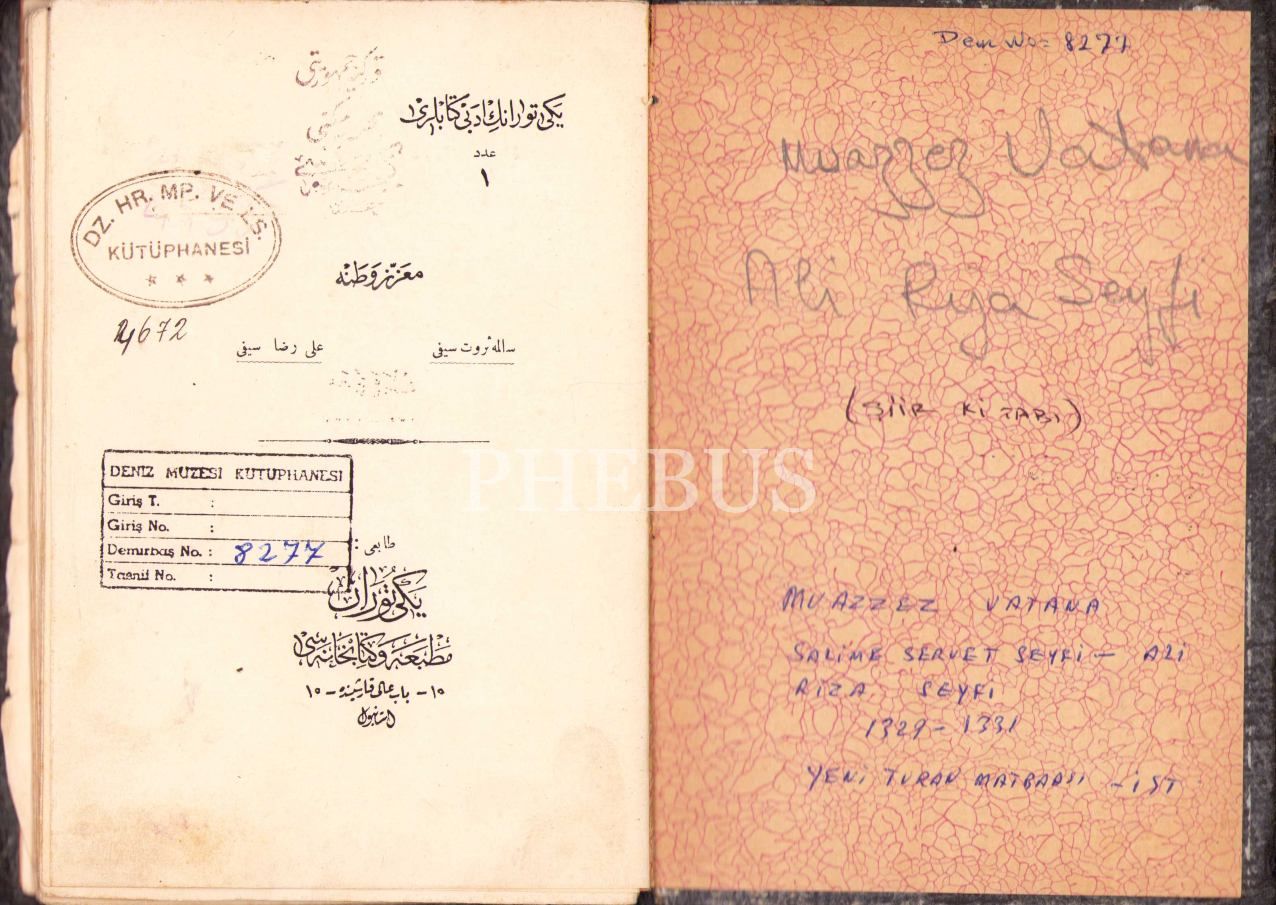 Dem No= 8277
Muazzez Vatana
Ali Rıza Seyfi
(ŞİİR KİTABI)
MUAZZEZ VATANA
SALİME SERVET SEYFİ - ALİ
RIZA SEYFİ
1329-1331
YENİ TURAN MATBAASI - İST
PHEBUS
یكی تورانك ادبی كتابلری
عدد
١
DZ. HR. MP. VE KS.
KÜTÜPHANESİ
4672
معزز وطنه
سالمه ثروت سیفی
علی رضا سیفی
DENIZ MUZESI KUTUPHANESI
Giriş T. :
Giriş No. :
Demirbaş No. : 8277
Tasnif No. :
طابعی :
یكی توران
مطبعه و كتابخانه سی
١٥- باب عالی قارشیسنده -١٥
استانبول